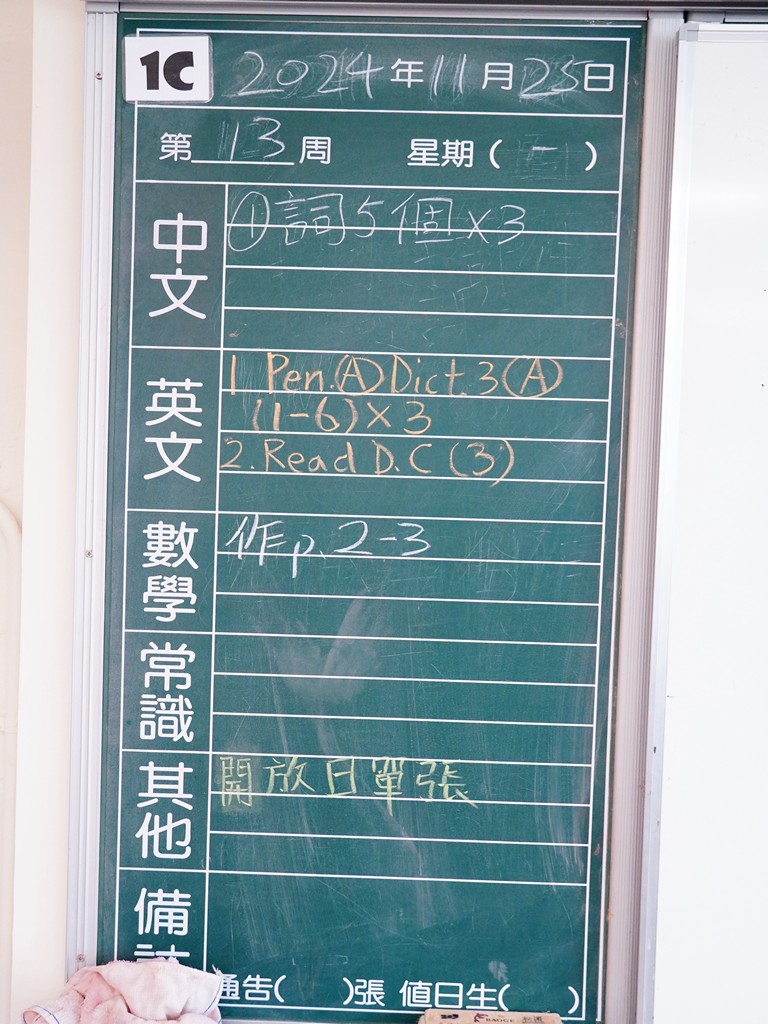 1C 2024年11月25日
第13周 星期(一)
中文
①詞5個×3
英文
1 Pen.(A) Dict.3(A)
(1-6)×3
2.Read D.C(3)
數學
作p.2-3
常識
其他
開放日單張
備
通告( )張 值日生( )